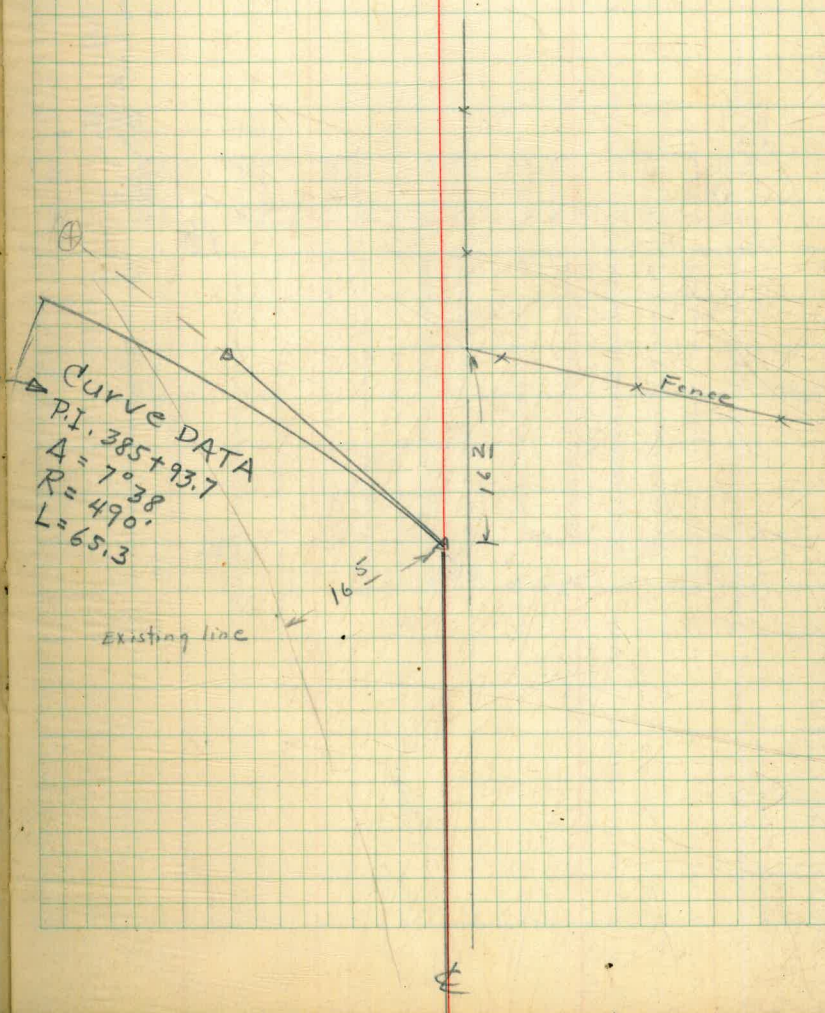 Curve DATA
P.I. 385+93.7
Δ = 7°38
R = 490'
L = 65.3
Fence
16 2
16 5
Existing line
℄